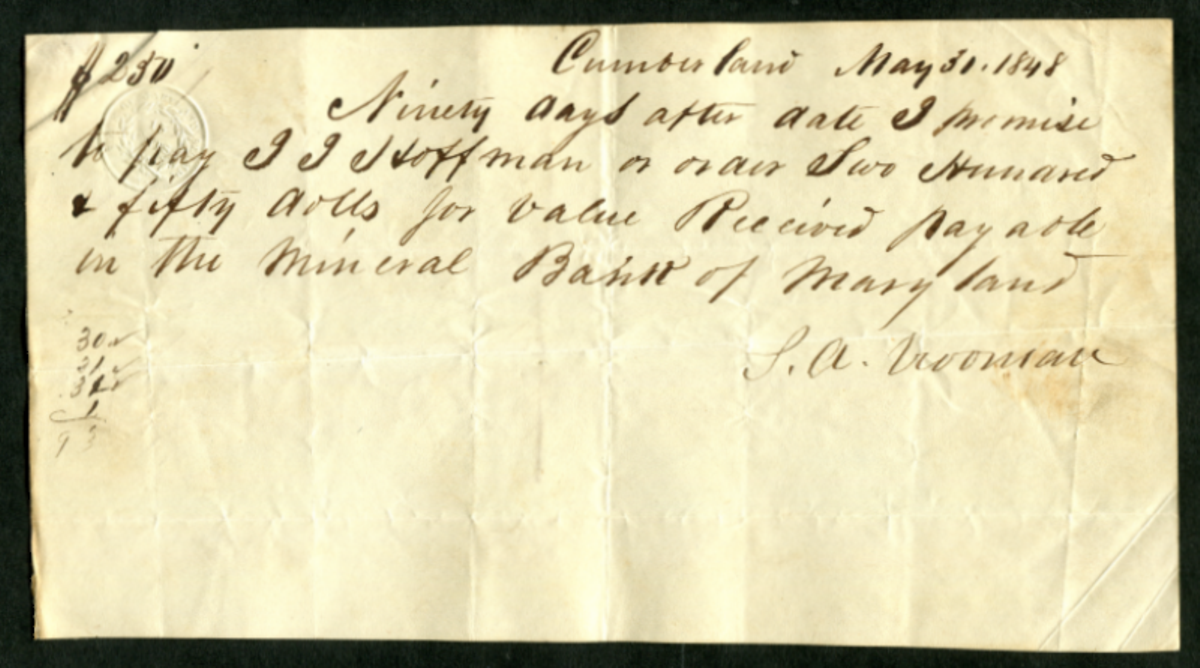 $250 Cumberland May 31. 1848
Ninety days after date I promise
to pay J J Hoffman or order Two Hundred
& fifty dolls for value Received payable
in the Mineral Bank of Maryland
S. A. Vrooman
30
31
1
93